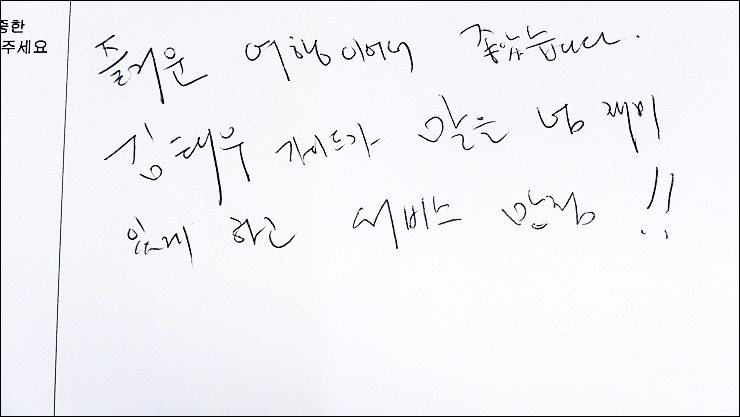 중한
주세요
즐거운 여행이어서 좋았습니다.
김태우 가이드가 말을 넘 재미
있게 하고 서비스 만점 !!